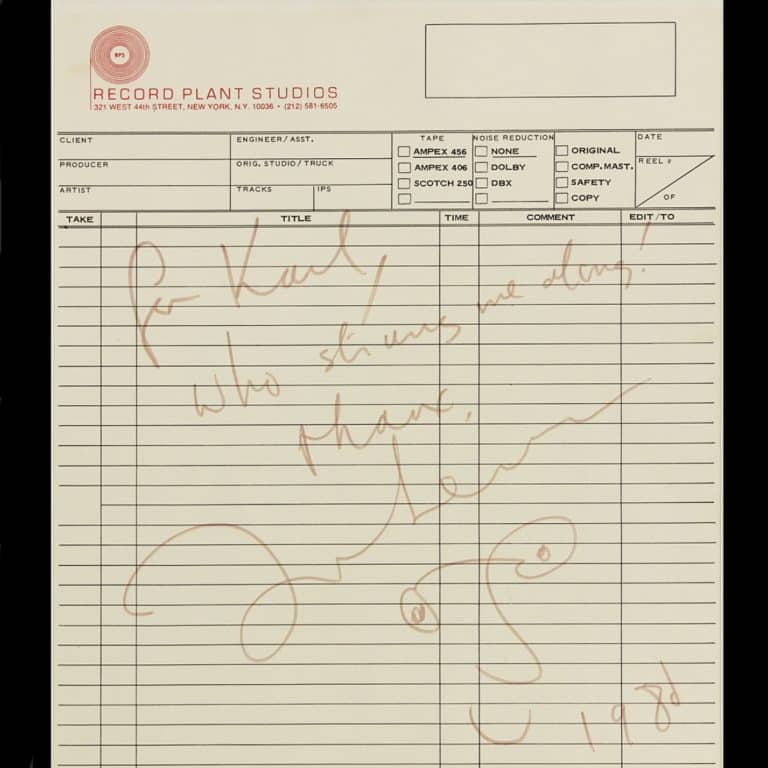 RPS
RECORD PLANT STUDIOS
321 WEST 44th STREET, NEW YORK, N.Y. 10036 • (212) 581-6505
CLIENT
ENGINEER/ASST.
TAPE
NOISE REDUCTION
DATE
AMPEX 456
NONE
ORIGINAL
PRODUCER
ORIG. STUDIO/TRUCK
AMPEX 406
DOLBY
COMP. MAST.
REEL #
ARTIST
TRACKS
IPS
SCOTCH 250
DBX
SAFETY
COPY
OF
TAKE
TITLE
TIME
COMMENT
EDIT/TO
for Karl,
who strings me along!
thanx,
John Lennon